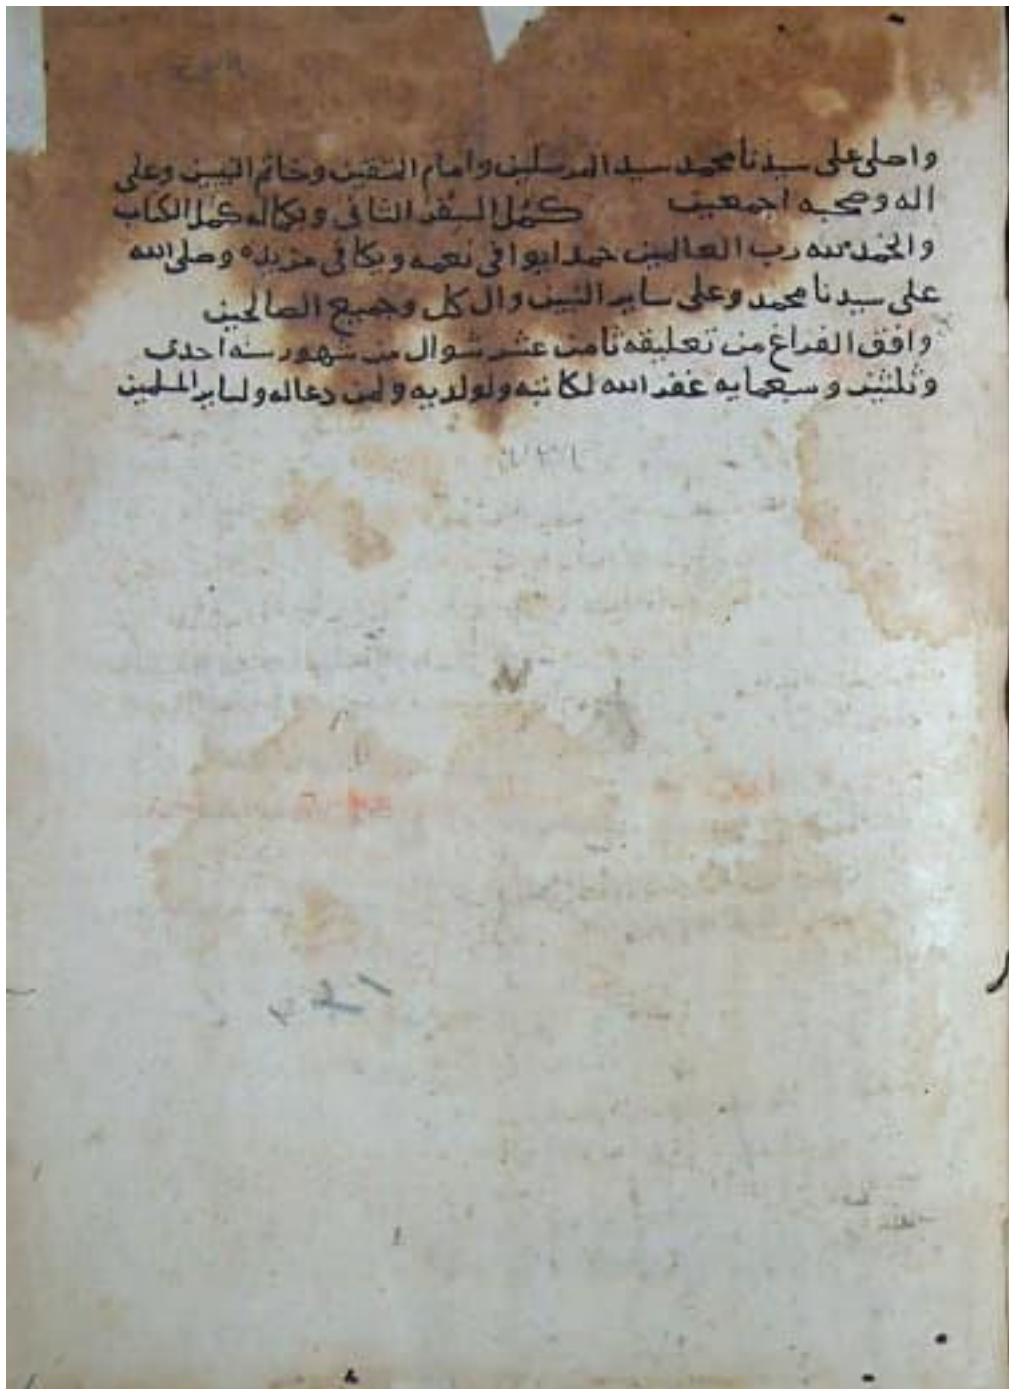 واصلى على سيدنا محمد سيد المرسلين وامام المتقين وخاتم النبيين وعلى
اله وصحبه اجمعين كمُل السِفر الثاني وبكماله كمل الكتاب
والحمد لله رب العالمين حمدا يوافي نعمه ويكافي مزيده وصلى الله
على سيدنا محمد وعلى ساير النبيين وال كل وجميع الصالحين
وافق الفراغ من تعليقه ثامن عشر شوال من شهور سنه احدى
وثلثين وسبعمايه غفر الله لكاتبه ولوالديه ولمن دعا له ولساير المسلمين